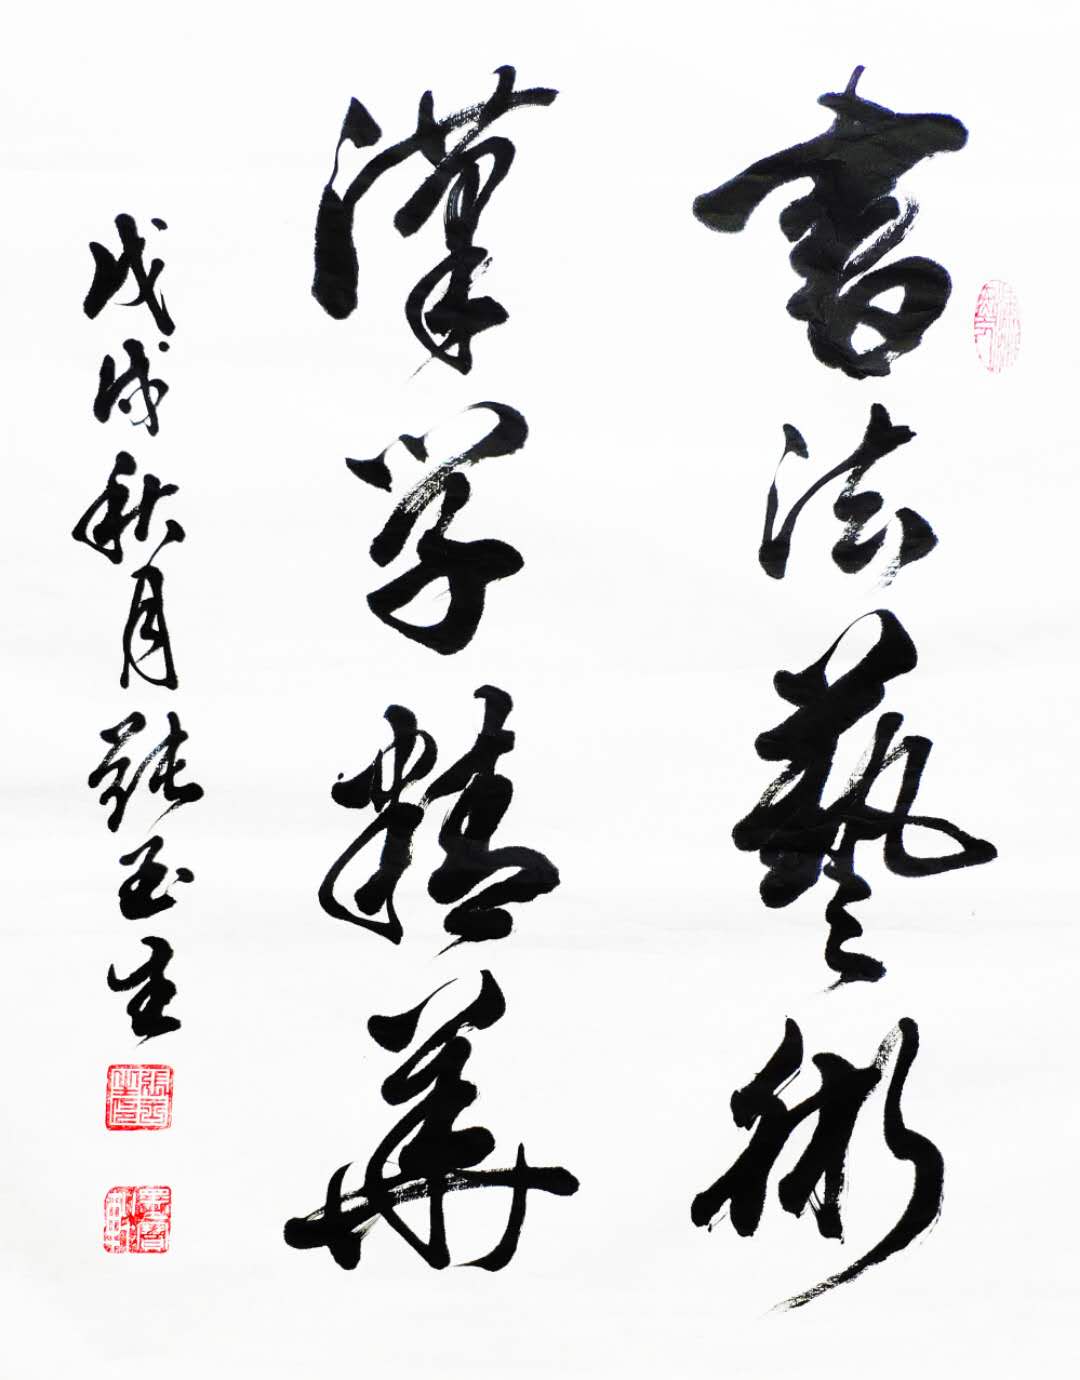 書法藝術
漢学精華
戊戌秋月張玉生